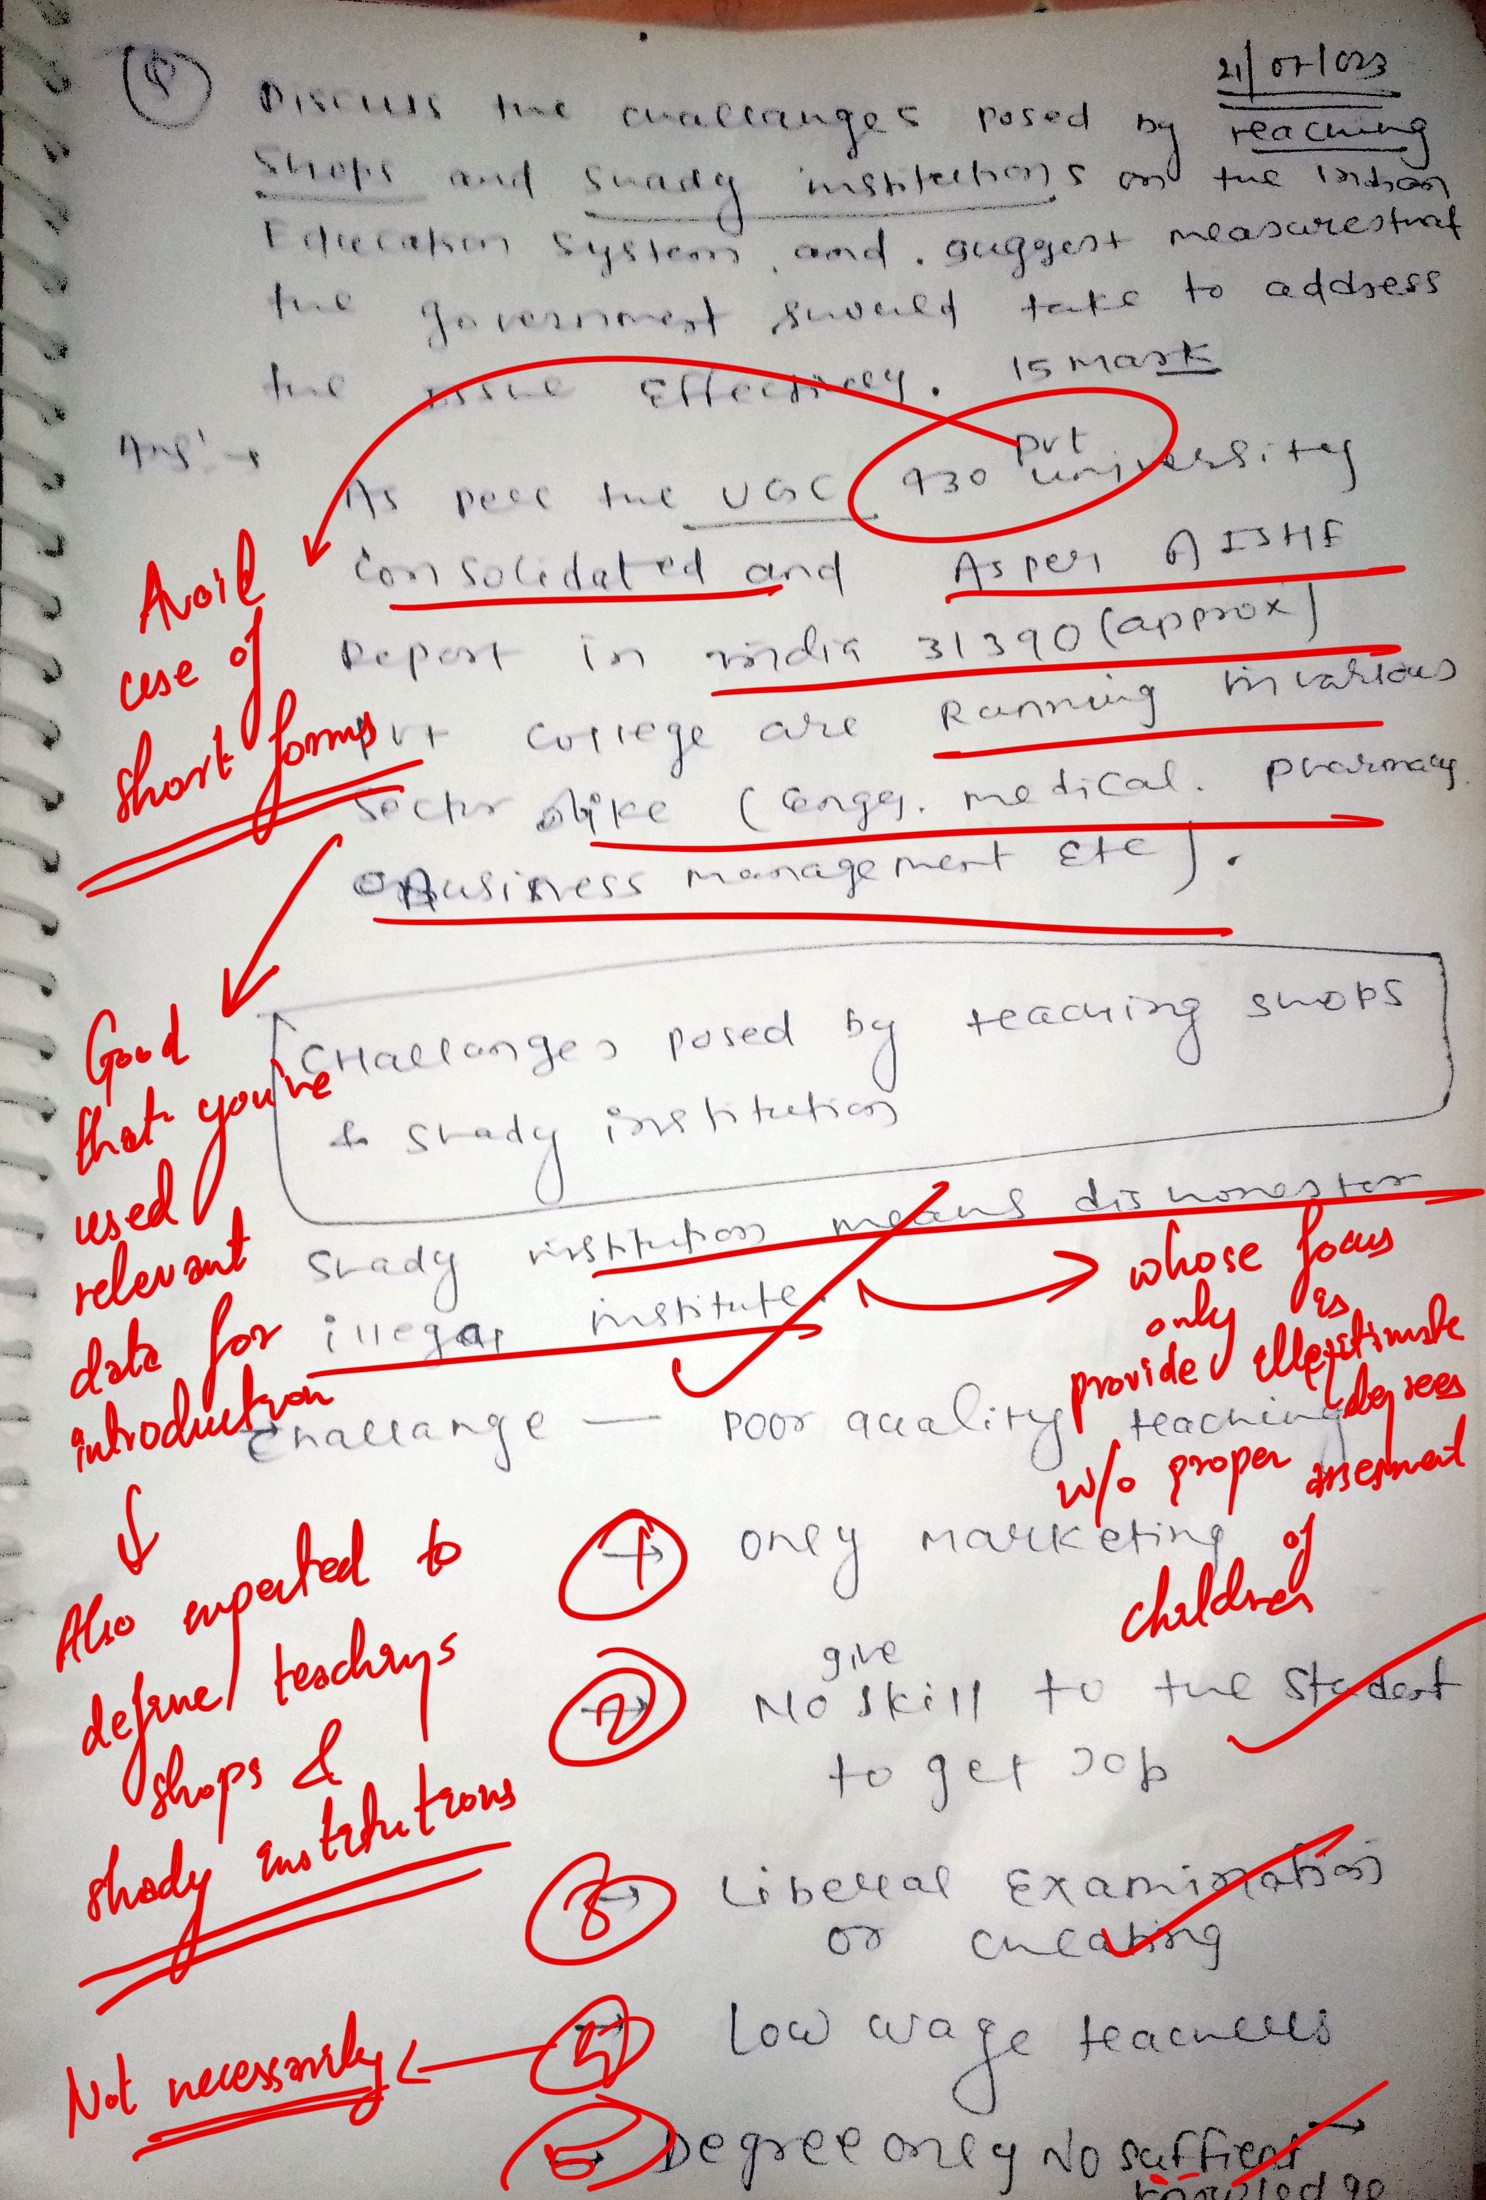 21/07/023
Q Discuss the challanges posed by teaching
shops and shady institutions on the Indian
Education System, and. suggest measures that
the government should take to address
the issue Effectively. 15 Mark
Ans:→
As per the UGC 430 pvt university
consolidated and As per AISHE
Report in india 31390 (approx)
pvt college are Running in various
sector like (Engg. medical. pharmacy
Business management Etc).
Avoid
use of
short forms
Good
that you've
used
relevant
data for
introduction
Also expected to
define teachings
shops &
shady institutions
CHallanges posed by teaching shops
& shady institution
Shady institution means dishonest or
illegal institute.
whose focus
only is
provide illegitimate
degrees
w/o proper assesment
of
children
challange — poor quality teaching
1 → only marketing
2 → No give skill to the student
to get Job
3 → Liberal Examination
or cheating
4 → Low wage teachers
Not necessarily
5 → Degree only No suffient →
knowledge